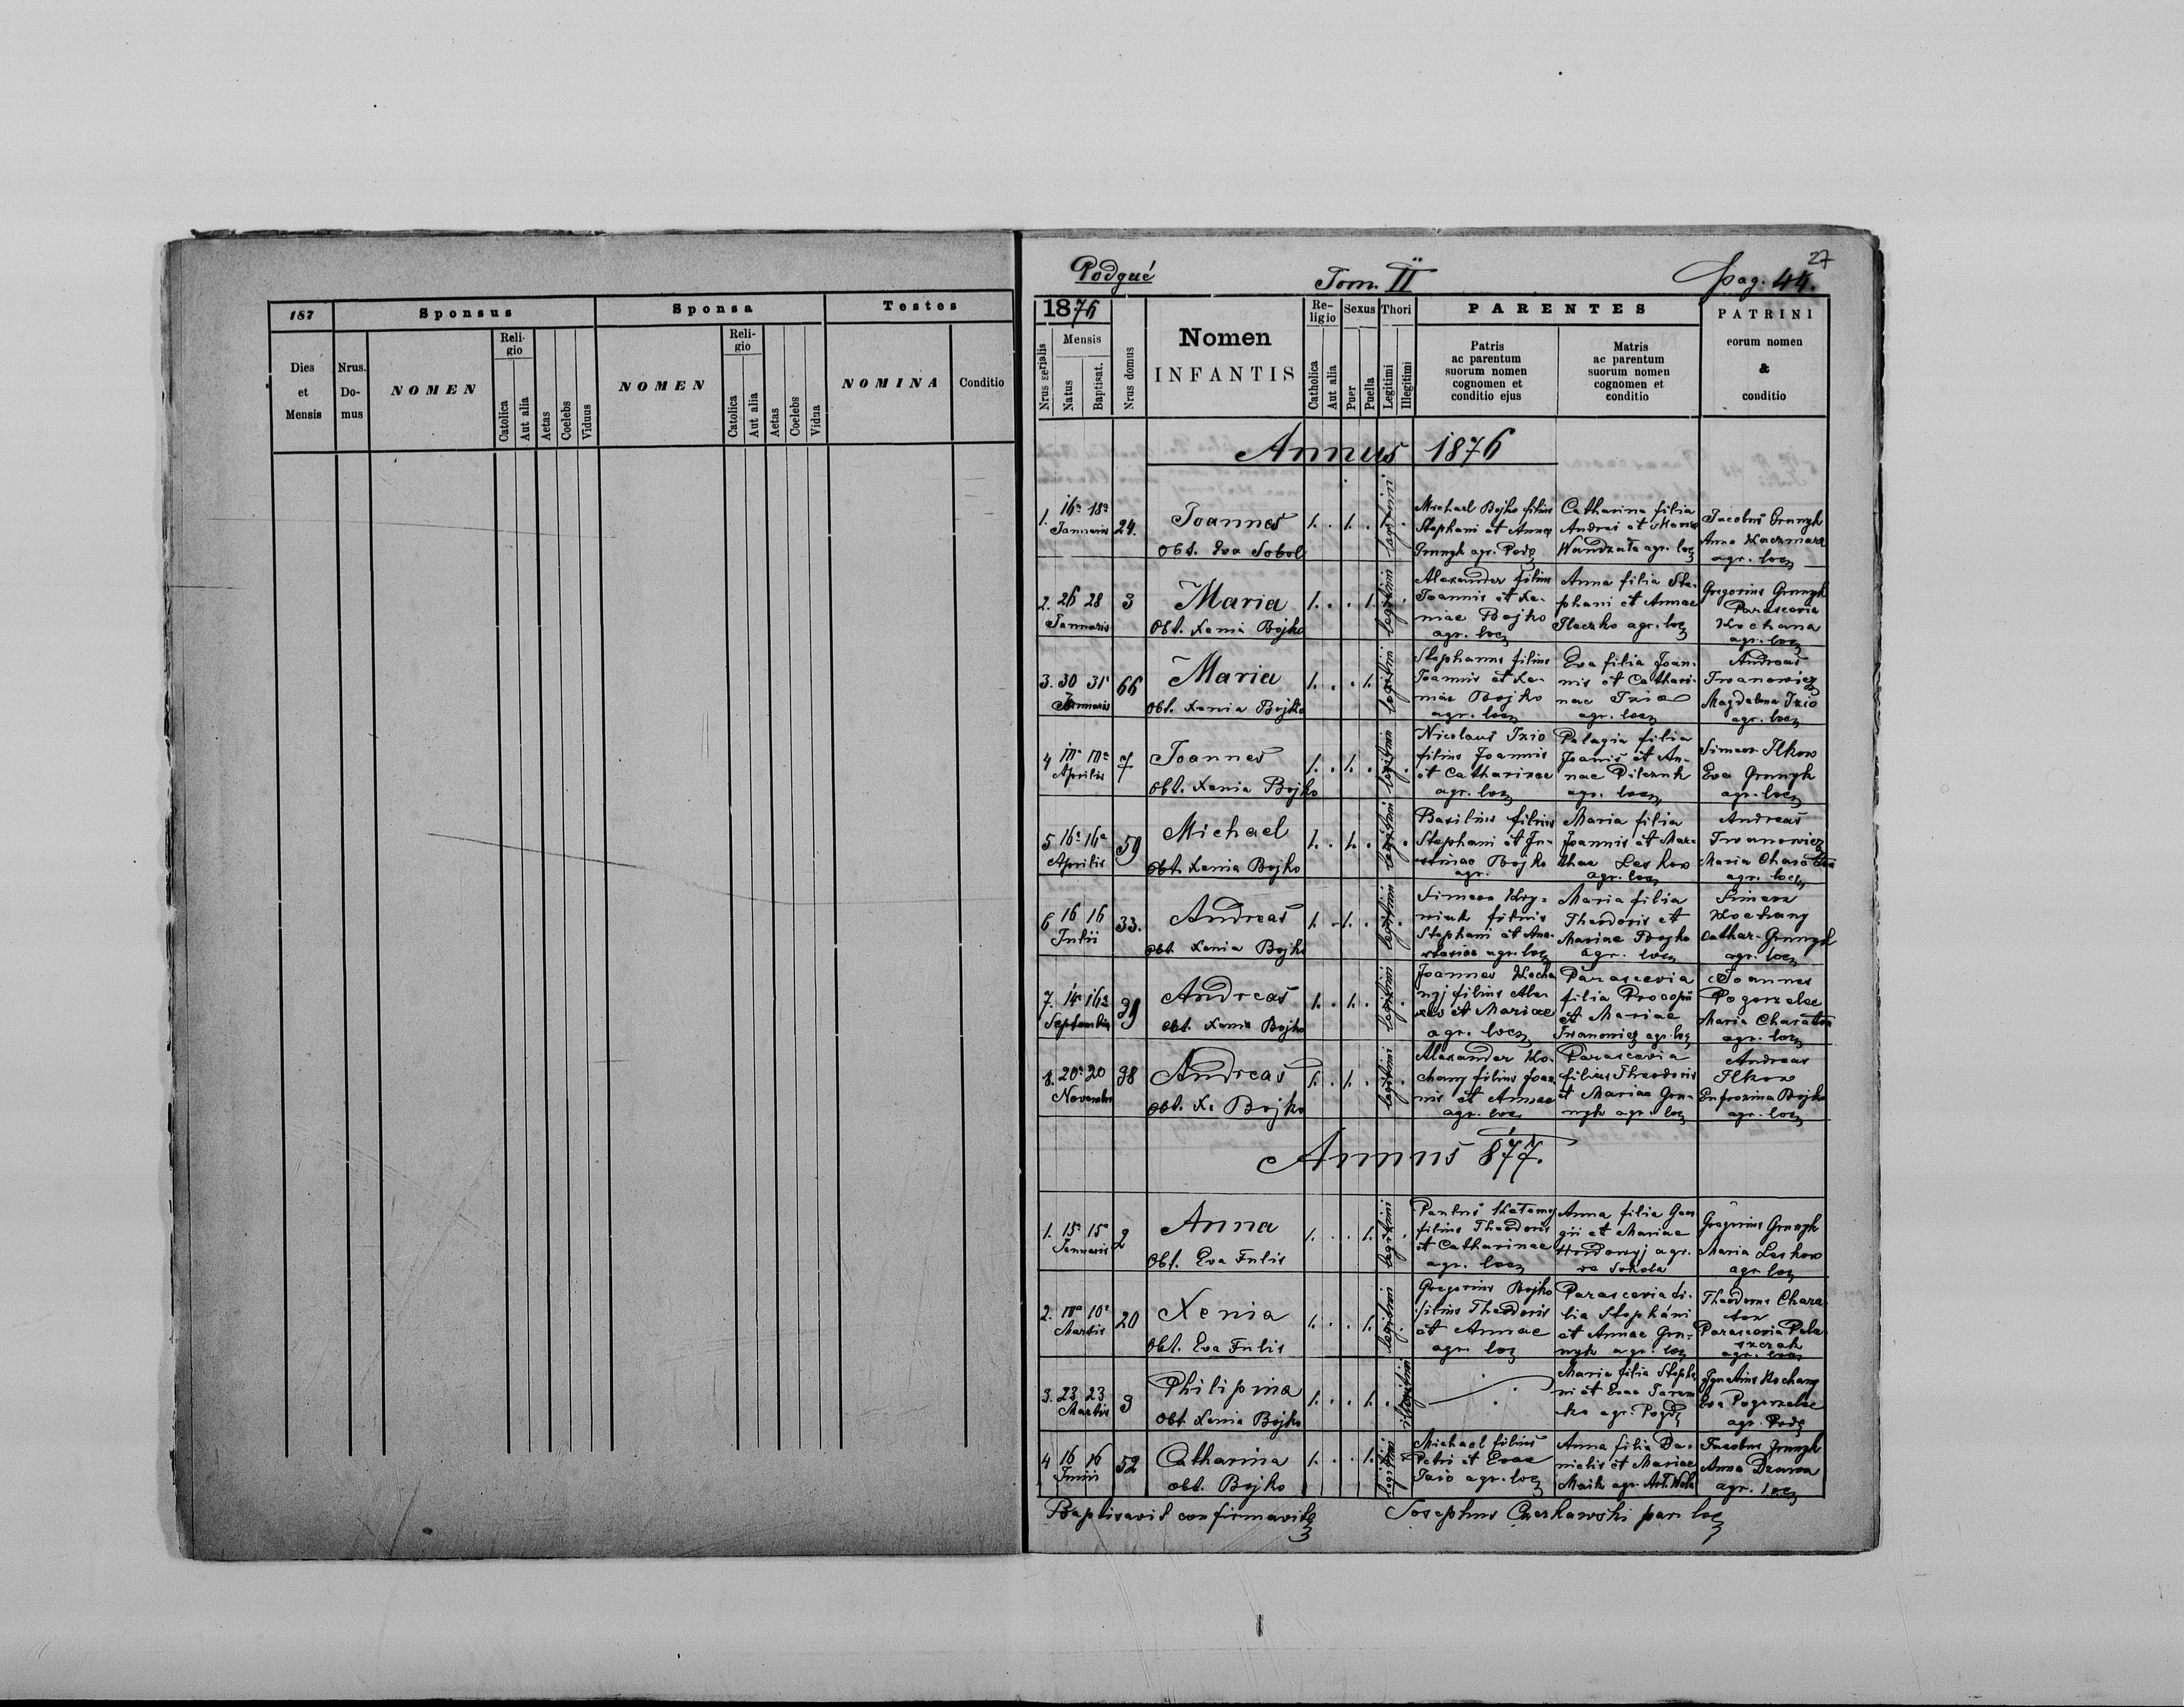 187
Sponsus
Sponsa
Testes
Dies
et
Mensis
Nrus.
Do-
mus
NOMEN
Reli-
gio
Catolica
Aut alia
Aetas
Coelebs
Viduus
NOMEN
Reli-
gio
Catolica
Aut alia
Aetas
Coelebs
Vidua
NOMINA
Conditio
27
Tom. II
pag. 44.
1876
Nrus serialis
Mensis
Natus
Baptisat.
Nrus domus
Nomen
INFANTIS
Re-
ligio
Catholica
Aut alia
Sexus
Puer
Puella
Thori
Legitimi
Illegitimi
PARENTES
Patris
ac parentum
suorum nomen
cognomen et
conditio ejus
Matris
ac parentum
suorum nomen
cognomen et
conditio
PATRINI
eorum nomen
&
conditio
Annus 1876
1. 16a 18a
Januaris
24.
Joannes
Obt. Eva Sobol
1. . 1. .
legitimi
Michael Bojko filius
Stephani et Annae
Grunyk agr. Podg
Catharina filia
Andrei et Maria
agr. locz
Jacobus Grunyk
Anna Kaczmara
agr. locz
2. 26 28
Januaris
3
Maria
Obt. Xenia Bojko
1. . . 1.
legitimi
Alexander filius
Joannis et Xe-
niae Bojko
agr. locz
Anna filia Ste-
phani et Annae
Ileczko agr. locz
Gregorius Grunyk
Parascevia
Kochana
agr. locz
3. 30 31
Januaris
66
Maria
Obt. Xenia Bojko
1. . . 1.
legitimi
Stephanus filius
Joannis et Xe-
niae Bojko
agr. locz
Eva filia Joan-
nis et Cathari-
nae
agr. locz
Andreas
Iwanowicz
Magdalena Izio
agr. locz
4
Aprilis
7
Joannes
Obt. Xenia Bojko
1. . 1. .
legitimi
Nicolaus Izio
filius Joannis
et Catharinae
agr. locz
Pelagia filia
Joanis et An-
nae Pilczuk
agr. locz
Simeon Ilkow
Eva Grunyk
agr. locz
5 16a 16a
Aprilis
59
Michael
Obt. Xenia Bojko
1. . 1. .
legitimi
Basilius filius
Stephani et Ju-
stinae Bojko
agr.
Maria filia
Joannis et Mar-
thae Leskow
agr. locz
Andreas
Iwanowicz
Maria Charaton
agr. locz
6 16 16
Julii
33.
Andreas
obt. Xenia Bojko
1. . 1. .
legitimi
Simeon
filius
Stephani et Ana-
stasiae agr. locz
Maria filia
Theodoris et
Mariae Bojko
agr. locz
Simeon
Kochany
Cathar. Grunyk
agr. locz
7. 14a 16a
Septembris
39
Andreas
obt. Xenia Bojko
1. . 1. .
legitimi
Joannes Kocha
nyj filius Ale-
xis et Mariae
agr. locz
Parascevia
filia Procopii
et Mariae
Iwanowicz agr. locz
Joannes
Pogorzelec
Maria Charaton
agr. locz
8. 20a 20
Novembris
38
Andreas
obt. Xe Bojko
1. . 1. .
legitimi
Alexander Ko-
chany filius Joan
nis et Annae
agr. locz
Parascevia
filius Theodoris
et Mariae Gru-
nyk agr. locz
Andreas
Ilkow
Eufrozina Bojko
agr. locz
Annus 1877.
1. 15a 15a
Januaris
2
Anna
Obt. Eva Fulis
1. . . 1.
legitimi
Paulus
filius Theodoris
et Catharinae
agr. locz
Anna filia Geor
gii et Mariae
agr.
Gregorius Grunyk
Maria Leskow
agr locz
2. 10a
Martis
20
Xenia
Obt. Eva Fulis
1. . . 1.
legitimi
Gregorius Bojko
filius Theodoris
et Annae
agr. locz
Parascevia fi-
lia Stephani
et Annae Gru-
nyk agr. locz
Theodorus Chara
ton
Parascevia
agr. locz
3. 23 23
Martis
3
Philipina
Obt. Xenia Bojko
1. . . 1.
illegitimi
Maria filia Stepha
ni et Evae
agr. Pogdz
Ignatius Kochany
Eva Pogorzelec
agr. Podg
4 16 16
Junii
52
Catharina
obt. Bojko
1. . . 1.
legitimi
Michael filius
Petri et Evae
agr. locz
Anna filia Da-
nielis et Mariae
Jacobus Grunyk
Anna
agr. locz
Baptisavit confirmavitq
Josephus Czerkawski par. locz